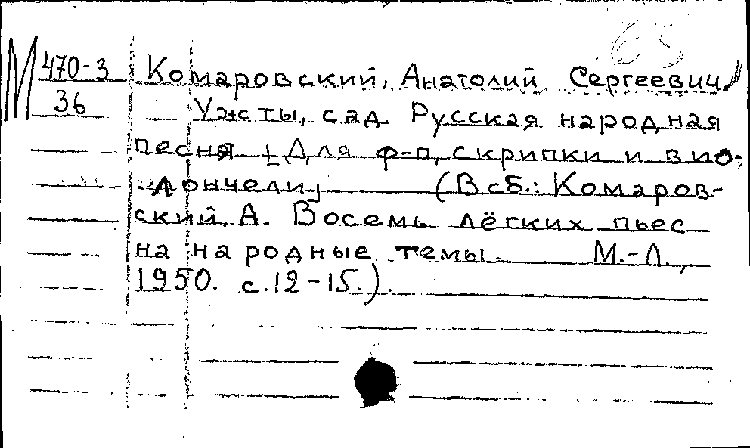 М 470-3
36
Комаровский, Анатолий Сергеевич
Уж ты, сад. Русская народная
песня [Для ф-п, скрипки и вио-
лончели] (В сб.: Комаров-
ский, А. Восемь лёгких пьес
на народные темы М.-Л.,
1950. с.12-15.)